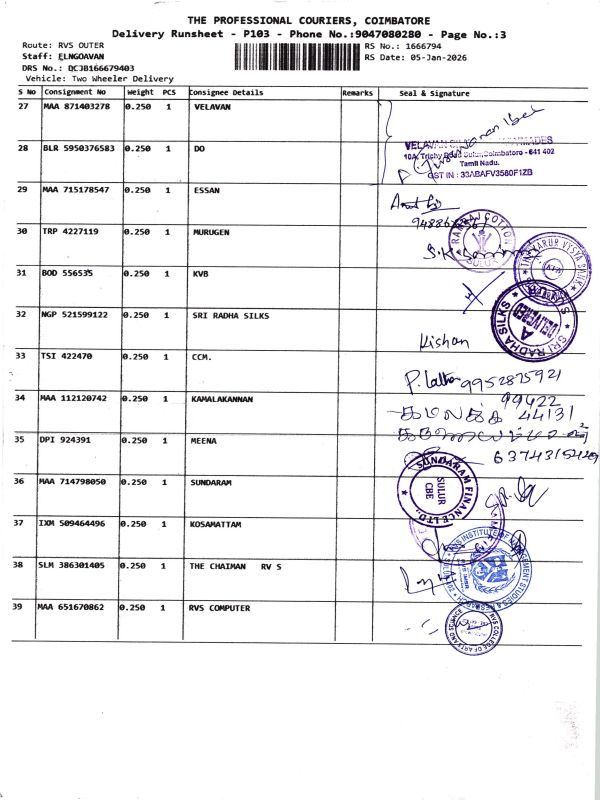 THE PROFESSIONAL COURIERS, COIMBATORE
Delivery Runsheet - P103 - Phone No.:9047080280 - Page No.:3
Route: RVS OUTER
RS No.: 1666794
Staff: ELNGOAVAN
RS Date: 05-Jan-2026
DRS No.: QCJB166679403
Vehicle: Two Wheeler Delivery
S No Consignment No Weight PCS Consignee Details Remarks Seal & Signature
27 MAA 871403278 0.250 1 VELAVAN
28 BLR 5950376583 0.250 1 DO
10A, Trichy Road Sulur,Coimbatore - 641 402
Tamil Nadu.
GST IN : 33ABAFV3580F1ZB
29 MAA 715178547 0.250 1 ESSAN
30 TRP 4227119 0.250 1 MURUGEN
COTTON
SULUR
31 BOD 556535 0.250 1 KVB
THE KARUR VYSYA BANK
32 NGP 521599122 0.250 1 SRI RADHA SILKS
SRI RADHA SILKS
DELIVERED
33 TSI 422470 0.250 1 CCM.
Kishan
P. Latha 9952875921
34 MAA 112120742 0.250 1 KAMALAKANNAN
99422
44131
35 DPI 924391 0.250 1 MEENA
36 MAA 714798050 0.250 1 SUNDARAM
SUNDARAM FINANCE LTD.
SULUR
CBE
37 IXM 509464496 0.250 1 KOSAMATTAM
38 SLM 386301405 0.250 1 THE CHAIMAN RV S
RVS INSTITUTE OF MANAGEMENT STUDIES & RESEARCH
39 MAA 651670862 0.250 1 RVS COMPUTER
RVS COLLEGE OF ARTS AND SCIENCE